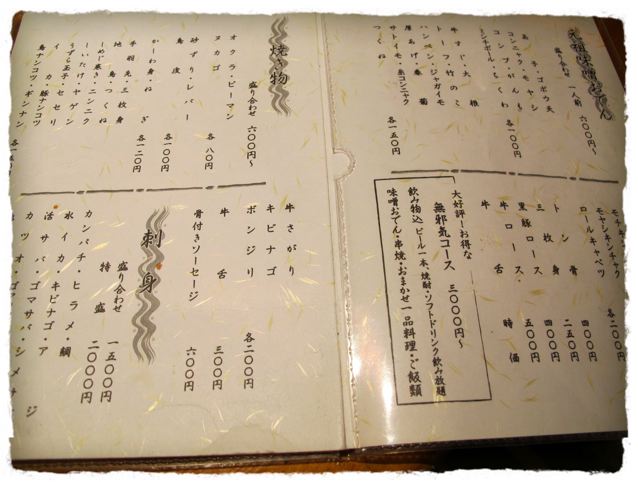 元祖味噌おでん
盛り合わせ 一人前 六〇〇円〜
コンニャク・モヤシ
各一〇〇円
牛すじ・大根
トーフ・竹のこ
ハンペン・ジャガイモ
厚あげ・春菊
サトイモ・糸コンニャク
つくね
各一五〇円
モヤシキンチャク
ロールキャベツ
各二〇〇円
トン骨 四〇〇円
三枚身 二五〇円
黒豚ロース 四〇〇円
牛ロース 五〇〇円
牛舌 時価
大好評!お得な
無邪気コース 三〇〇〇円〜
飲み物込 ビール一本、焼酎・ソフトドリンク飲み放題
味噌おでん・串焼・おまかせ一品料理・ご飯類
焼き物
盛り合わせ 六〇〇円〜
オクラ・ピーマン
ヌカゴ
各八〇円
砂ずり・レバー
鳥皮
各一〇〇円
かーわ身・ねぎ
手羽先・三枚身
地鳥・つくね
各一二〇円
しめじ巻き・ニンニク
しいたけ・ヤゲン
うずら玉子・セセリ
イカ・豚ナンコツ
鳥ナンコツ・ギンナン
牛さがり
キビナゴ
ボンジリ
各二〇〇円
牛舌 三〇〇円
骨付きソーセージ 六〇〇円
刺身
盛り合わせ 一五〇〇円
特盛 二〇〇〇円
カンパチ・ヒラメ・鯛
水イカ・キビナゴ・アジ
活サバ・ゴマサバ・シメサバ